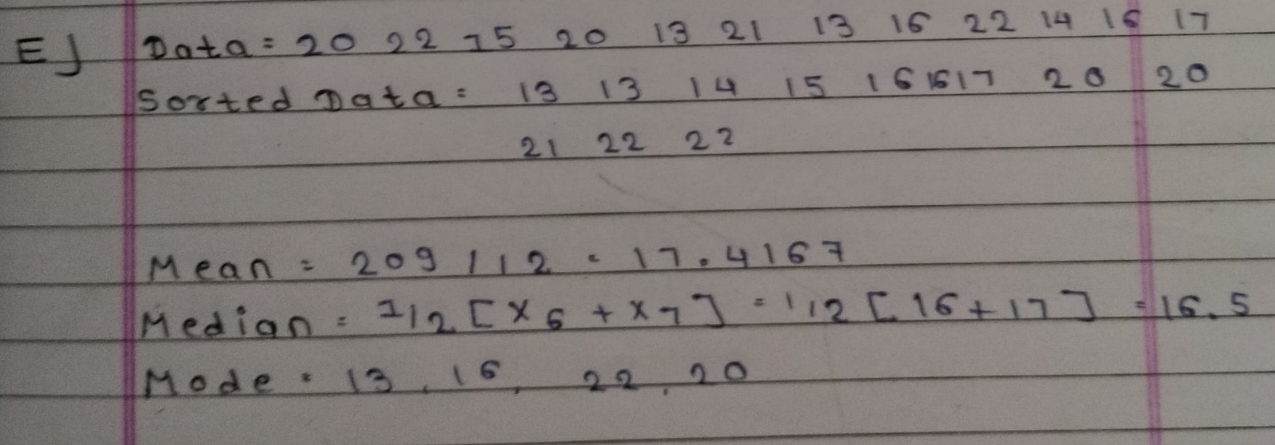 E] Data = 20 22 15 20 13 21 13 16 22 14 16 17
Sorted Data = 13 13 14 15 16 16 17 20 20
21 22 22
Mean = 209/12 = 17.4167
Median = 1/2 [x6 + x7] = 1/2 [16+17] = 16.5
Mode = 13, 16, 22, 20